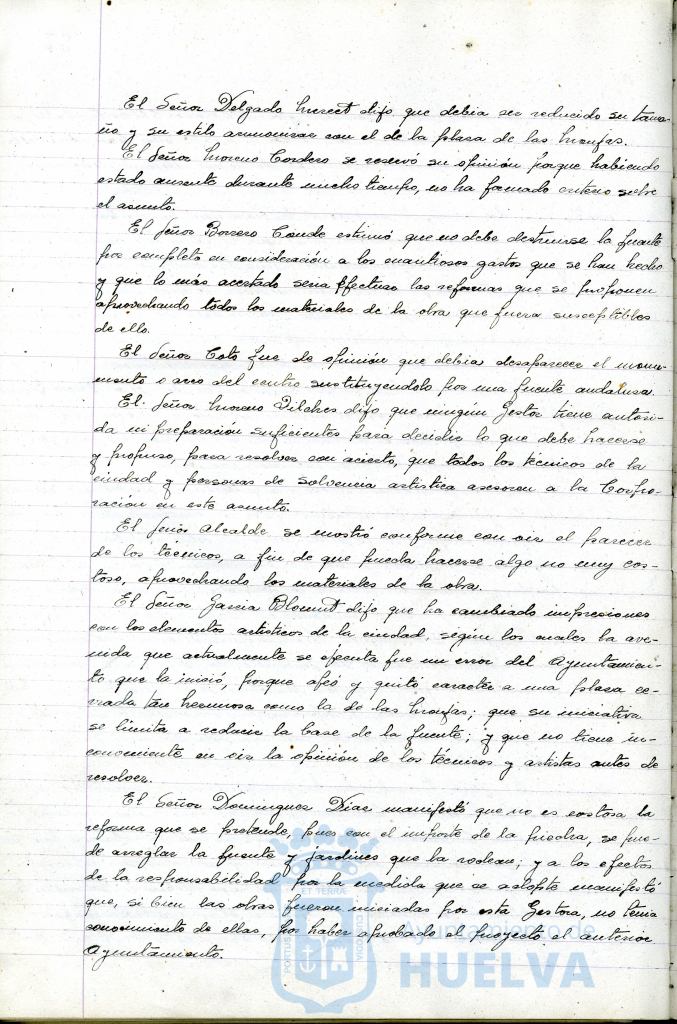 El Señor Delgado dijo que debia ser reducido su tama-
ño y su estilo armonizar con el de la plaza de las Monjas.
El Señor Moreno Cordero se reservó su opinión porque habiendo
estado ausente durante mucho tiempo, no ha formado criterio sobre
el asunto.
El Señor Borrero Conde estimó que no debe destruirse la fuente
por completo en consideración a los cuantiosos gastos que se han hecho
y que lo más acertado seria efectuar las reformas que se proponen
aprovechando todos los materiales de la obra que fuera susceptibles
de ello.
El Señor Coto fue de opinión que debia desaparecer el monu-
mento o arco del centro sustituyendolo por una fuente andaluza.
El Señor Moreno Vilches dijo que ningún Gestor tiene autori-
da ni preparación suficientes para decidir lo que debe hacerse
y propuso, para resolver con acierto, que todos los técnicos de la
ciudad y personas de solvencia artistica asesoren a la Corpo-
ración en este asunto.
El Señor Alcalde se mostró conforme con oir el parecer
de los técnicos, a fin de que pueda hacerse algo no muy cos-
toso, aprovechando los materiales de la obra.
El Señor Garcia dijo que ha cambiado impresiones
con los elementos artisticos de la ciudad, según los cuales la ave-
nida que actualmente se ejecuta fue un error del Ayuntamien-
to que la inició, porque afeó y quitó carácter a una plaza ce-
rrada tan hermosa como la de las Monjas; que su iniciativa
se limita a reducir la base de la fuente; y que no tiene in-
conveniente en oir la opinión de los técnicos y artistas antes de
resolver.
El Señor Dominguez Diaz manifestó que no es costosa la
reforma que se pretende, pues con el importe de la piedra, se pue-
de arreglar la fuente y jardines que la rodean; y a los efectos
de la responsabilidad por la medida que se adopte manifestó
que, si bien las obras fueron iniciadas por esta Gestora, no tenia
conocimiento de ellas, por haber aprobado el proyecto el anterior
Ayuntamiento.
Ayuntamiento de
HUELVA